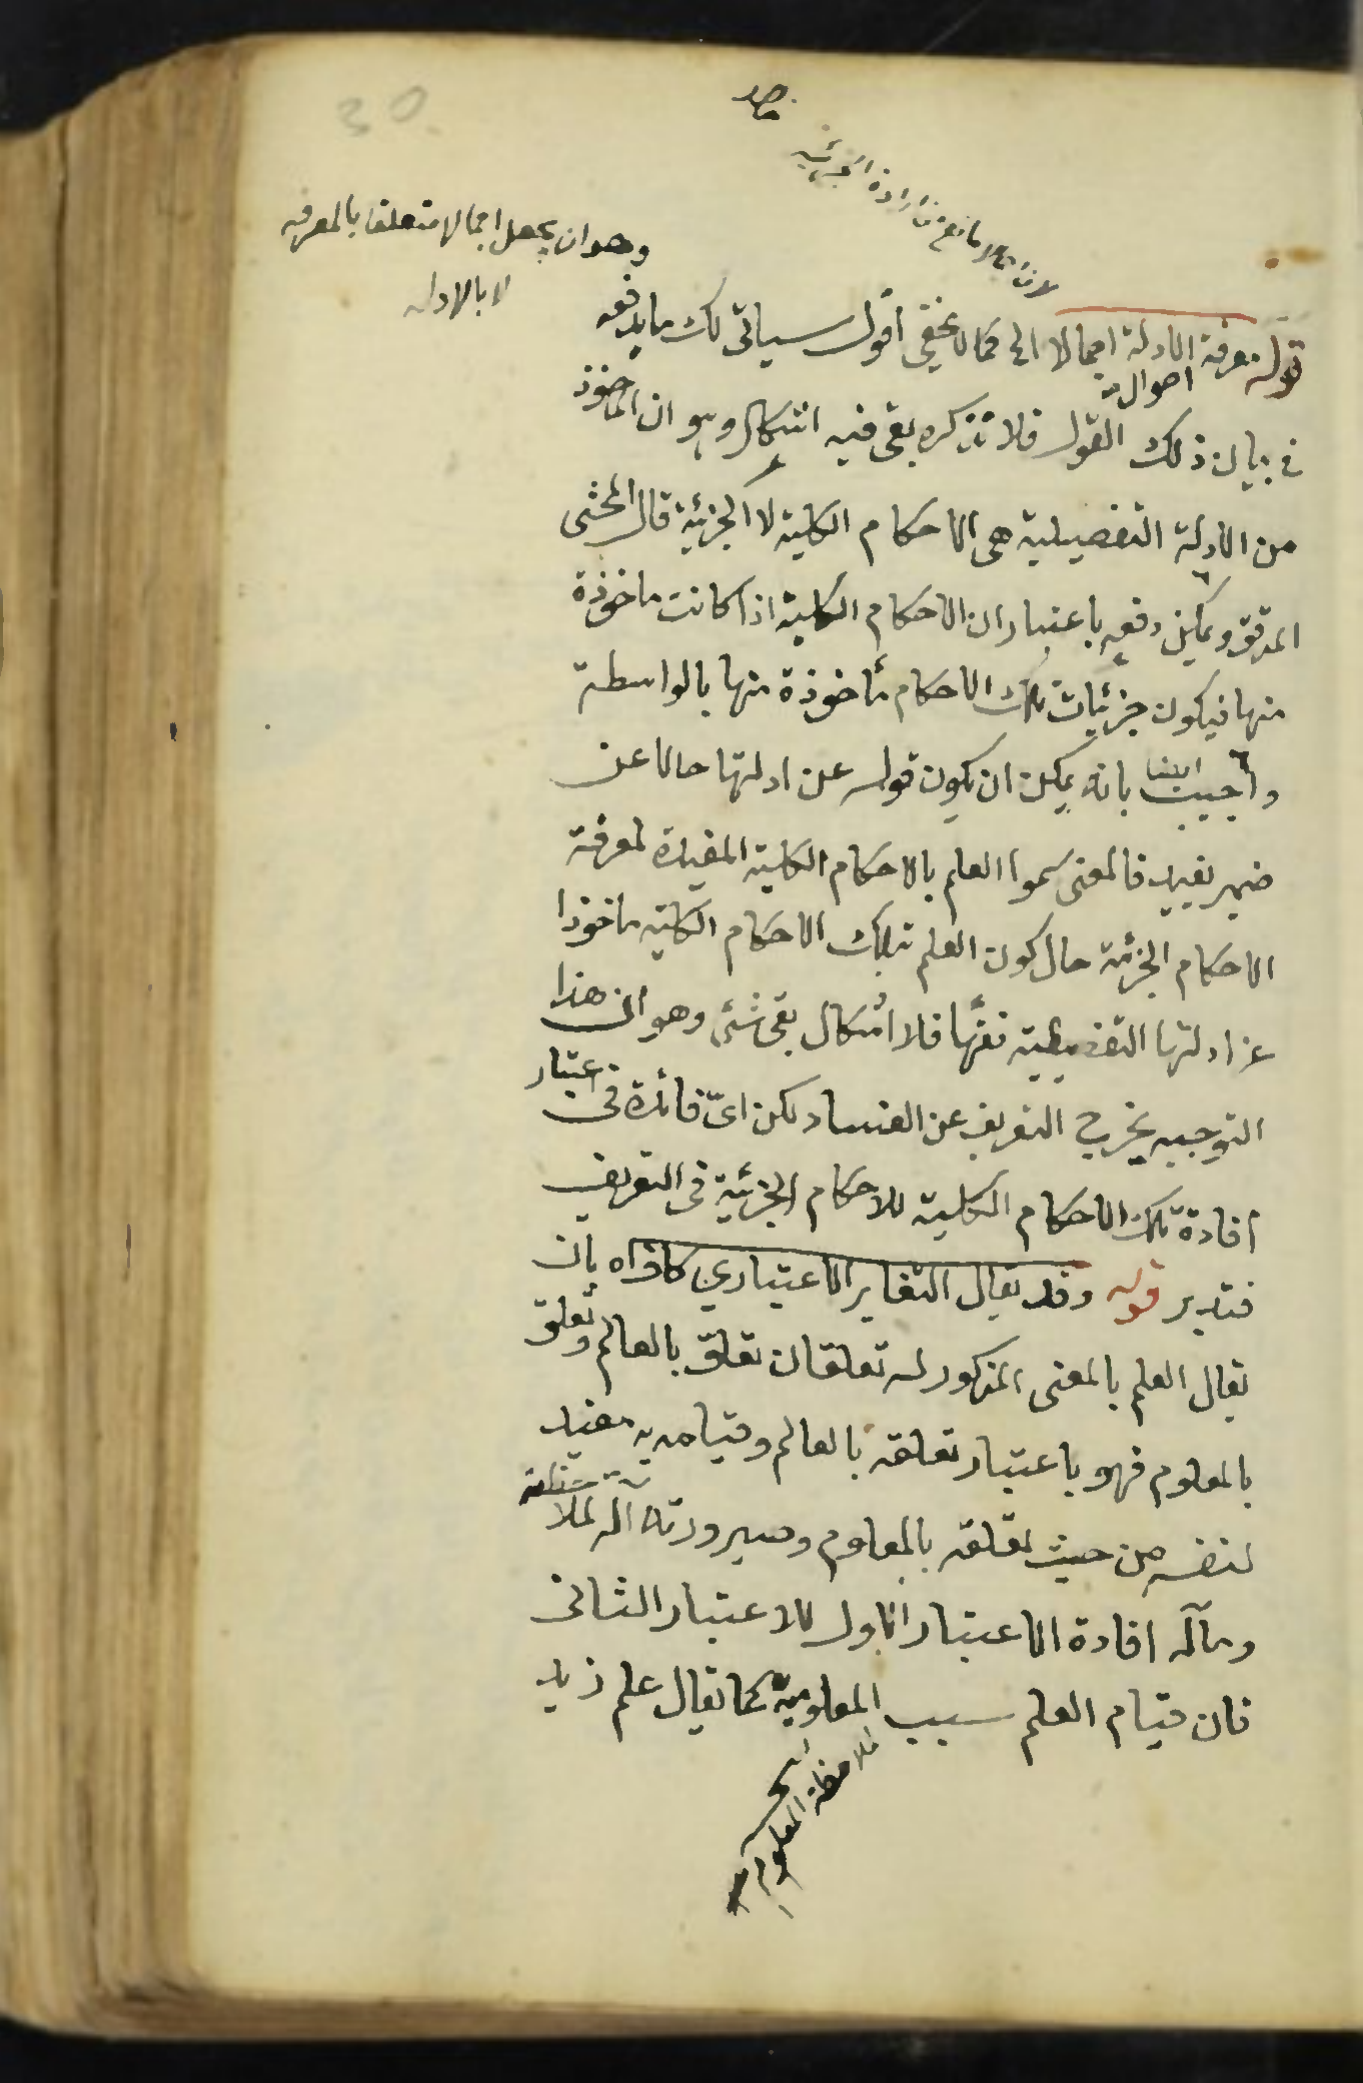 30
لان اجمالا مانع من ارادة الجزئية
وهو ان يجعل اجمالا متعلقا بالمعرفة
لا بالادلة
قوله معرفة احوال الادلة اجمالا الى كما لا يخفى اقول سياتى لك ما يدفعه
فى بيان ذلك القول فلا تذكره بقى فيه اشكال وهو ان الماخوذ
من الادلة التفصيلية هى الاحكام الكلية لا الجزئية قال المحشى
المدقق ويمكن دفعه باعتبار ان الاحكام الكلية اذا كانت ماخوذة
منها فيكون جزئيات تلك الاحكام مأخوذة منها بالواسطة
واجيب ايضا بانه يمكن ان يكون قوله عن ادلتها حالا عن
ضمير يفيد فالمعنى سموا العلم بالاحكام الكلية المفيدة لمعرفة
الاحكام الجزئية حال كون العلم بتلك الاحكام الكلية ماخوذا
عن ادلتها التفصيلية نفسها فلا اشكال بقى شئ وهو ان هذا
التوجيه يخرج التعريف عن الفساد لكن اىّ فائدة فى اعتبار
افادة تلك الاحكام الكلية للاحكام الجزئية فى التعريف
فتدبر قوله وقد يقال التغاير الاعتبارى كاف اه بان
يقال العلم بالمعنى المذكور له تعلقان تعلق بالعالم وتعلق
بالمعلوم فهو باعتبار تعلقه بالعالم وقيامه به مفيد
لنفسه من حيث تعلقه بالمعلوم وصيرورته آلة لملاحظته
ومآله افادة الاعتبار الاول للاعتبار الثانى
فان قيام العلم سبب المعلومية كما يقال علم زيد